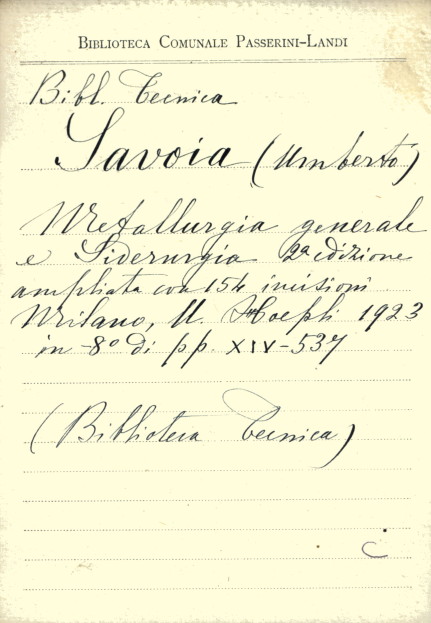 BIBLIOTECA COMUNALE PASSERINI-LANDI
Bibl. Tecnica
Savoia (Umberto)
Metallurgia generale
e Siderurgia 2a edizione
ampliata con 154 incisioni
Milano, U. Hoepli 1923
in-8° di pp. XIV-537
(Biblioteca Tecnica)